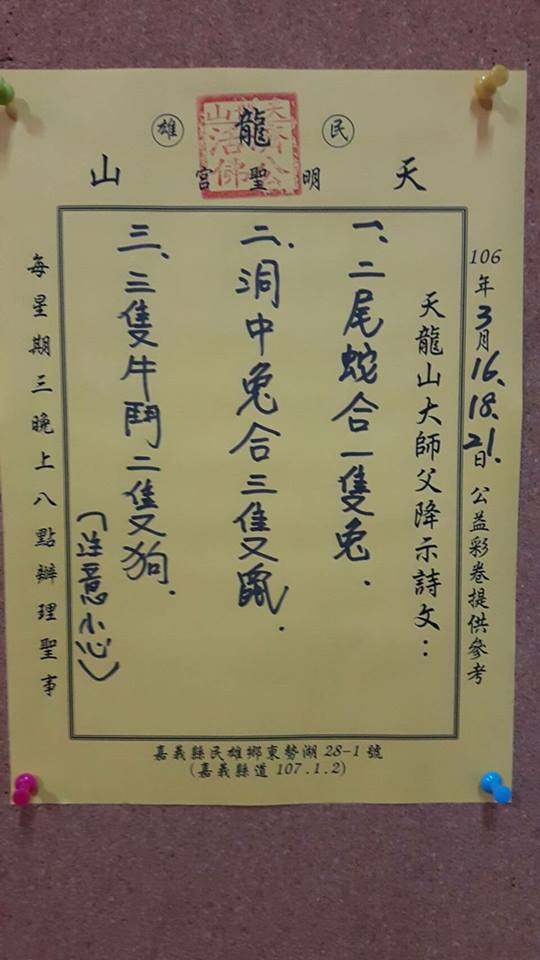 民 雄
天龍山
明聖宮
天山濟公活佛
106年3月16.18.21.日 公益彩卷提供參考
天龍山大師父降示詩文：
一、二尾蛇合一隻兔.
二、洞中兔合三隻鼠.
三、三隻牛鬥二隻狗.
(注意小心)
每星期三晚上八點辦理聖事
嘉義縣民雄鄉東勢湖28-1號
(嘉義縣道107.1.2)